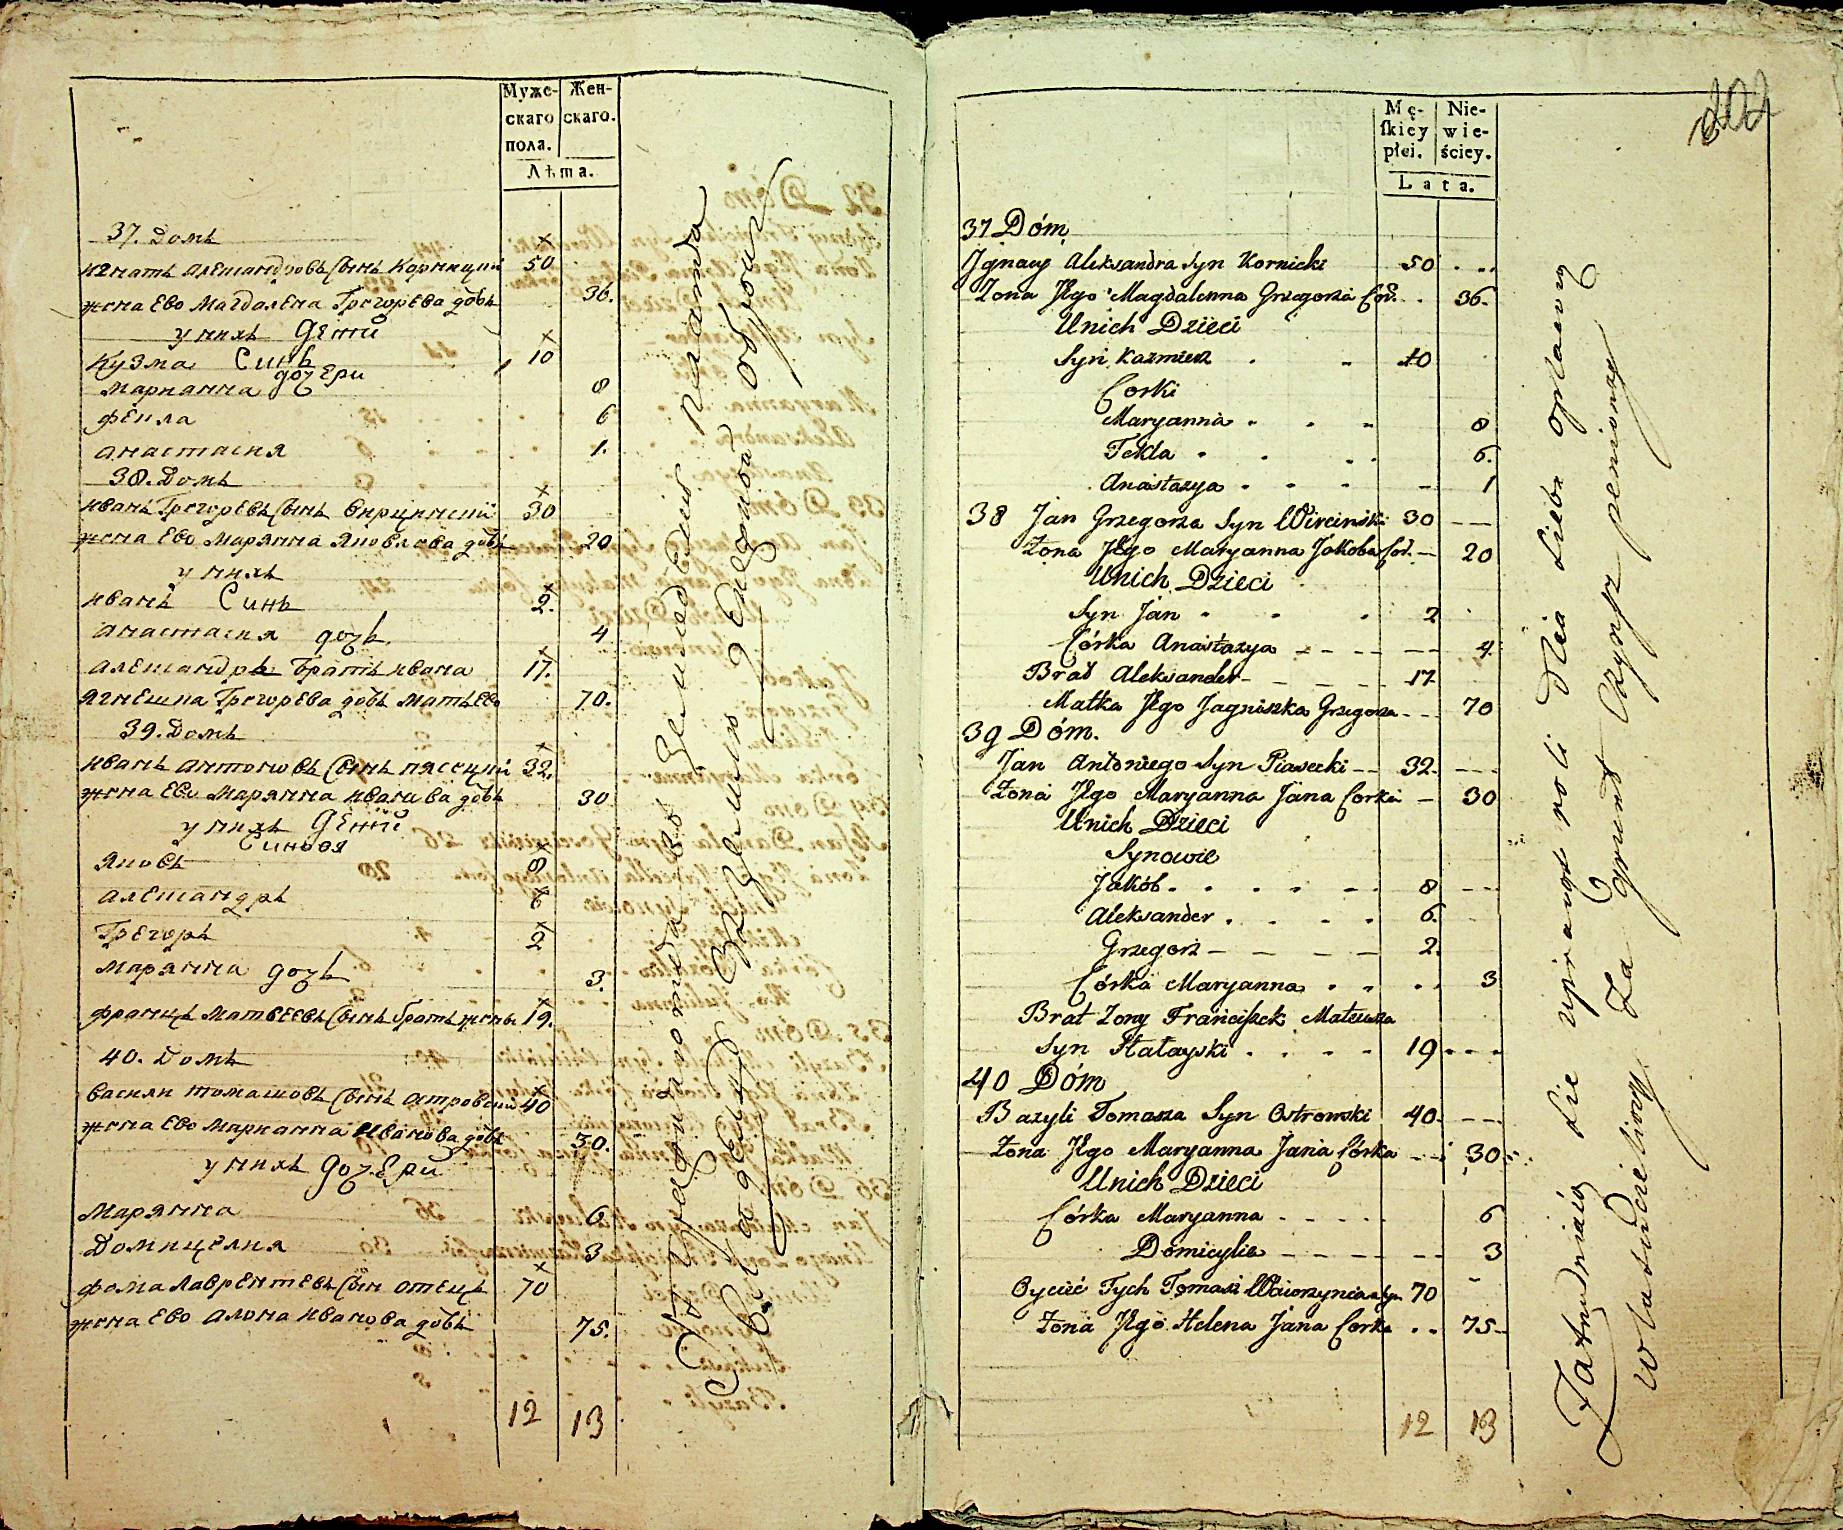 Муже-
скаго
пола.
Жен-
скаго.
Лѣта.
37. Домъ
Игнатъ Александровъ Сынъ Корницкий 50
жена Ево Магдалена Грегорева дочь 36.
у нихъ Дети
Кузма Синъ 10
дочери
Марианна 8
Фекла 6
Анастасия 1.
38. Домъ
Иванъ Грегоревъ Сынъ Вирцинский 30
жена Ево Марянна Яковлева дочь 20
у нихъ
Иванъ Синъ 2.
Анастасия дочь 4
Александръ Братъ Ивана 17.
Ягнешка Грегорева дочь мать Ево 70.
39. Домъ
Иванъ Антоновъ Сынъ Пясецкий 32.
жена Ево Марянна Иванова дочь 30
у нихъ Дети
Синовя
Яковъ 8
Александръ 6
Грегоръ 2
Марянна дочь 3.
Францъ Матвеевъ Сынъ братъ жены 19.
40. Домъ
Василий Томашовъ Сынъ Островский 40
жена Ево Марианна Иванова дочь 30.
у нихъ дочери
Марянна 6
Домицелия 3
Фома Лаврентевъ Сын отецъ 70
жена Ево Алена Иванова дочь 75.
12 13
202
Mę-
ſkiey
płci.
Nie-
wie-
ściey.
Lata.
37 Dóm
Jgnacy Aleksandra Syn Kornicki 50
Zona Jego Magdalenna Grzegorza Cor. 36.
Unich Dzieci
Syn Kazmierz 10
Corki
Maryanna 8
Tekla 6.
Anastazya 1
38 Jan Grzegorza Syn Wirciński 30
Zona Jego Maryanna Jakoba Cor. 20
Unich Dzieci
Syn Jan 2
Córka Anastazya 4
Brad Aleksander 17
Matka Jego Jagniszka Grzegorza 70
39 Dóm.
Jan Antoniego Syn Piasecki 32.
Zona Jego Maryanna Jana Corka 30
Unich Dzieci
Synowie
Jakób 8
Aleksander 6.
Grzegorz 2.
Córka Maryanna 3
Brat Zony Franciszek Mateusza
Syn 19
40 Dóm
Bazyli Tomasza Syn Ostrowski 40
Zona Jego Maryanna Jana Córka 30
Unich Dzieci
Córka Maryanna 6
Domicylia 3
Oyciec Tych Tomasz Wawrzynca Syn 70
Zona Jego Helena Jana Corka 75
12 13
Zatrudniaią sie uprawą roli dla siebie opłacaią
właścicielowi za grunt Czynsz pieniężny